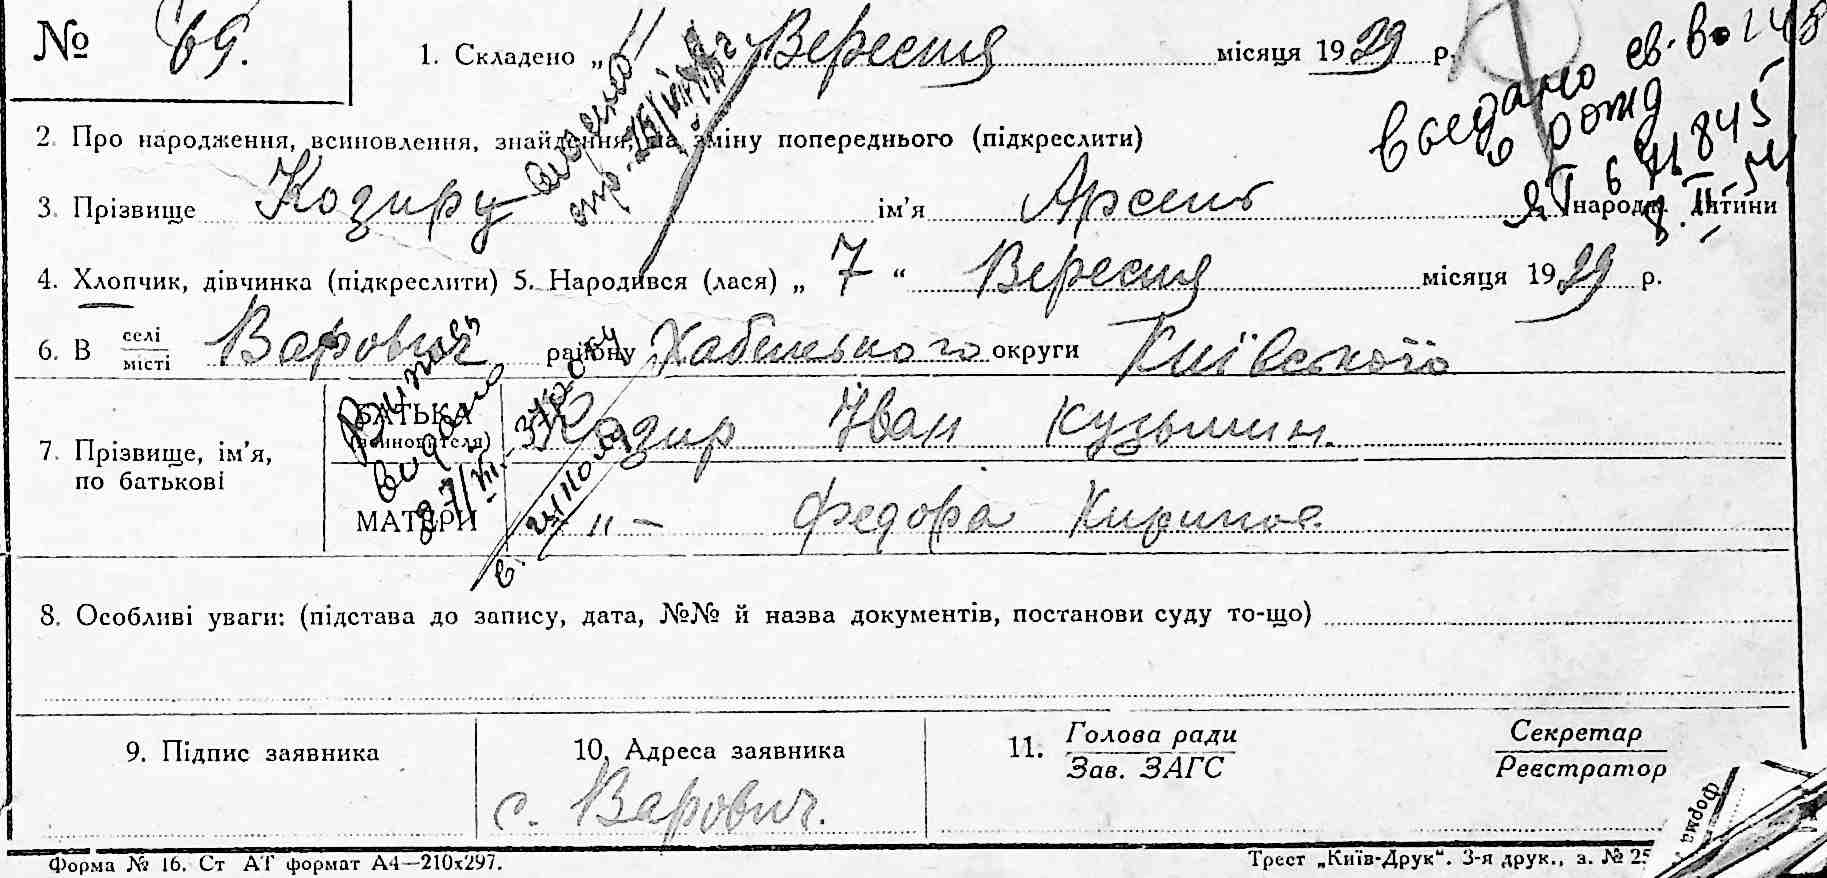 № 69. 1. Складено „ 11 Вересня місяця 1929 р.
выдано св-во
о рожд
2. Про народження, всиновлення, знайдення, на зміну попереднього (підкреслити)
ЯТ 671845
3. Прізвище Козиру ім'я Арсень народж. дитини
8.II-54
4. Хлопчик, дівчинка (підкреслити) 5. Народився (лася) „ 7 “ Вересня місяця 1929 р.
6. В селі
місті Варович району Хабенського округи Київского
7. Прізвище, ім'я,
по батькові
БАТЬКА
(всиновителя) Козир Іван Кузьмин.
МАТЕРИ - „ - Федора
8. Особливі уваги: (підстава до запису, дата, №№ й назва документів, постанови суду то-що)
9. Підпис заявника 10. Адреса заявника 11. Голова ради
Зав. ЗАГС Секретар
Реєстратор
с.Варович.
Форма № 16. Ст АТ формат А4—210х297. Трест „Київ-Друк“. 3-я друк., з. № 25
форма